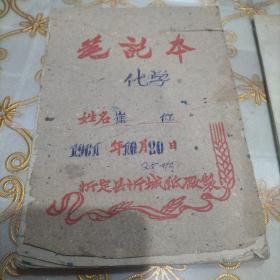 笔記本
化学
姓名崔
1961年10月20日
忻定县忻城纸厰製